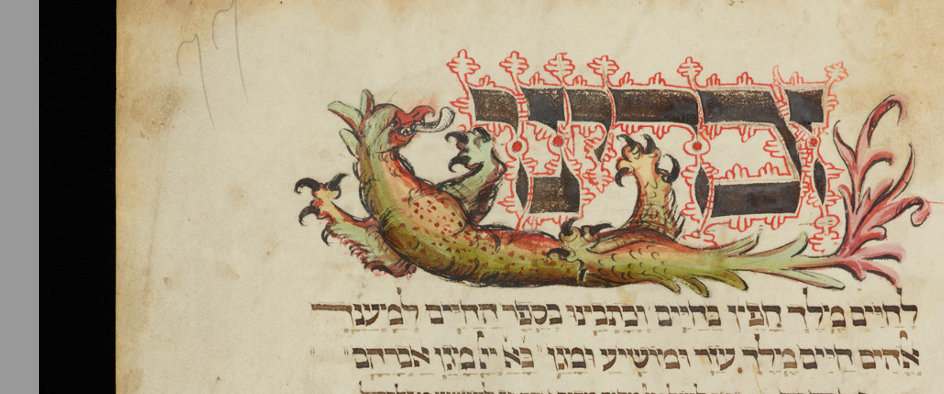 זכרינו
לחיים מלך חפץ בחיים וכתבינו בספר החיים למענך
אהים חיים מלך עזר ומושיע ומגן בא יי מגן אברהם